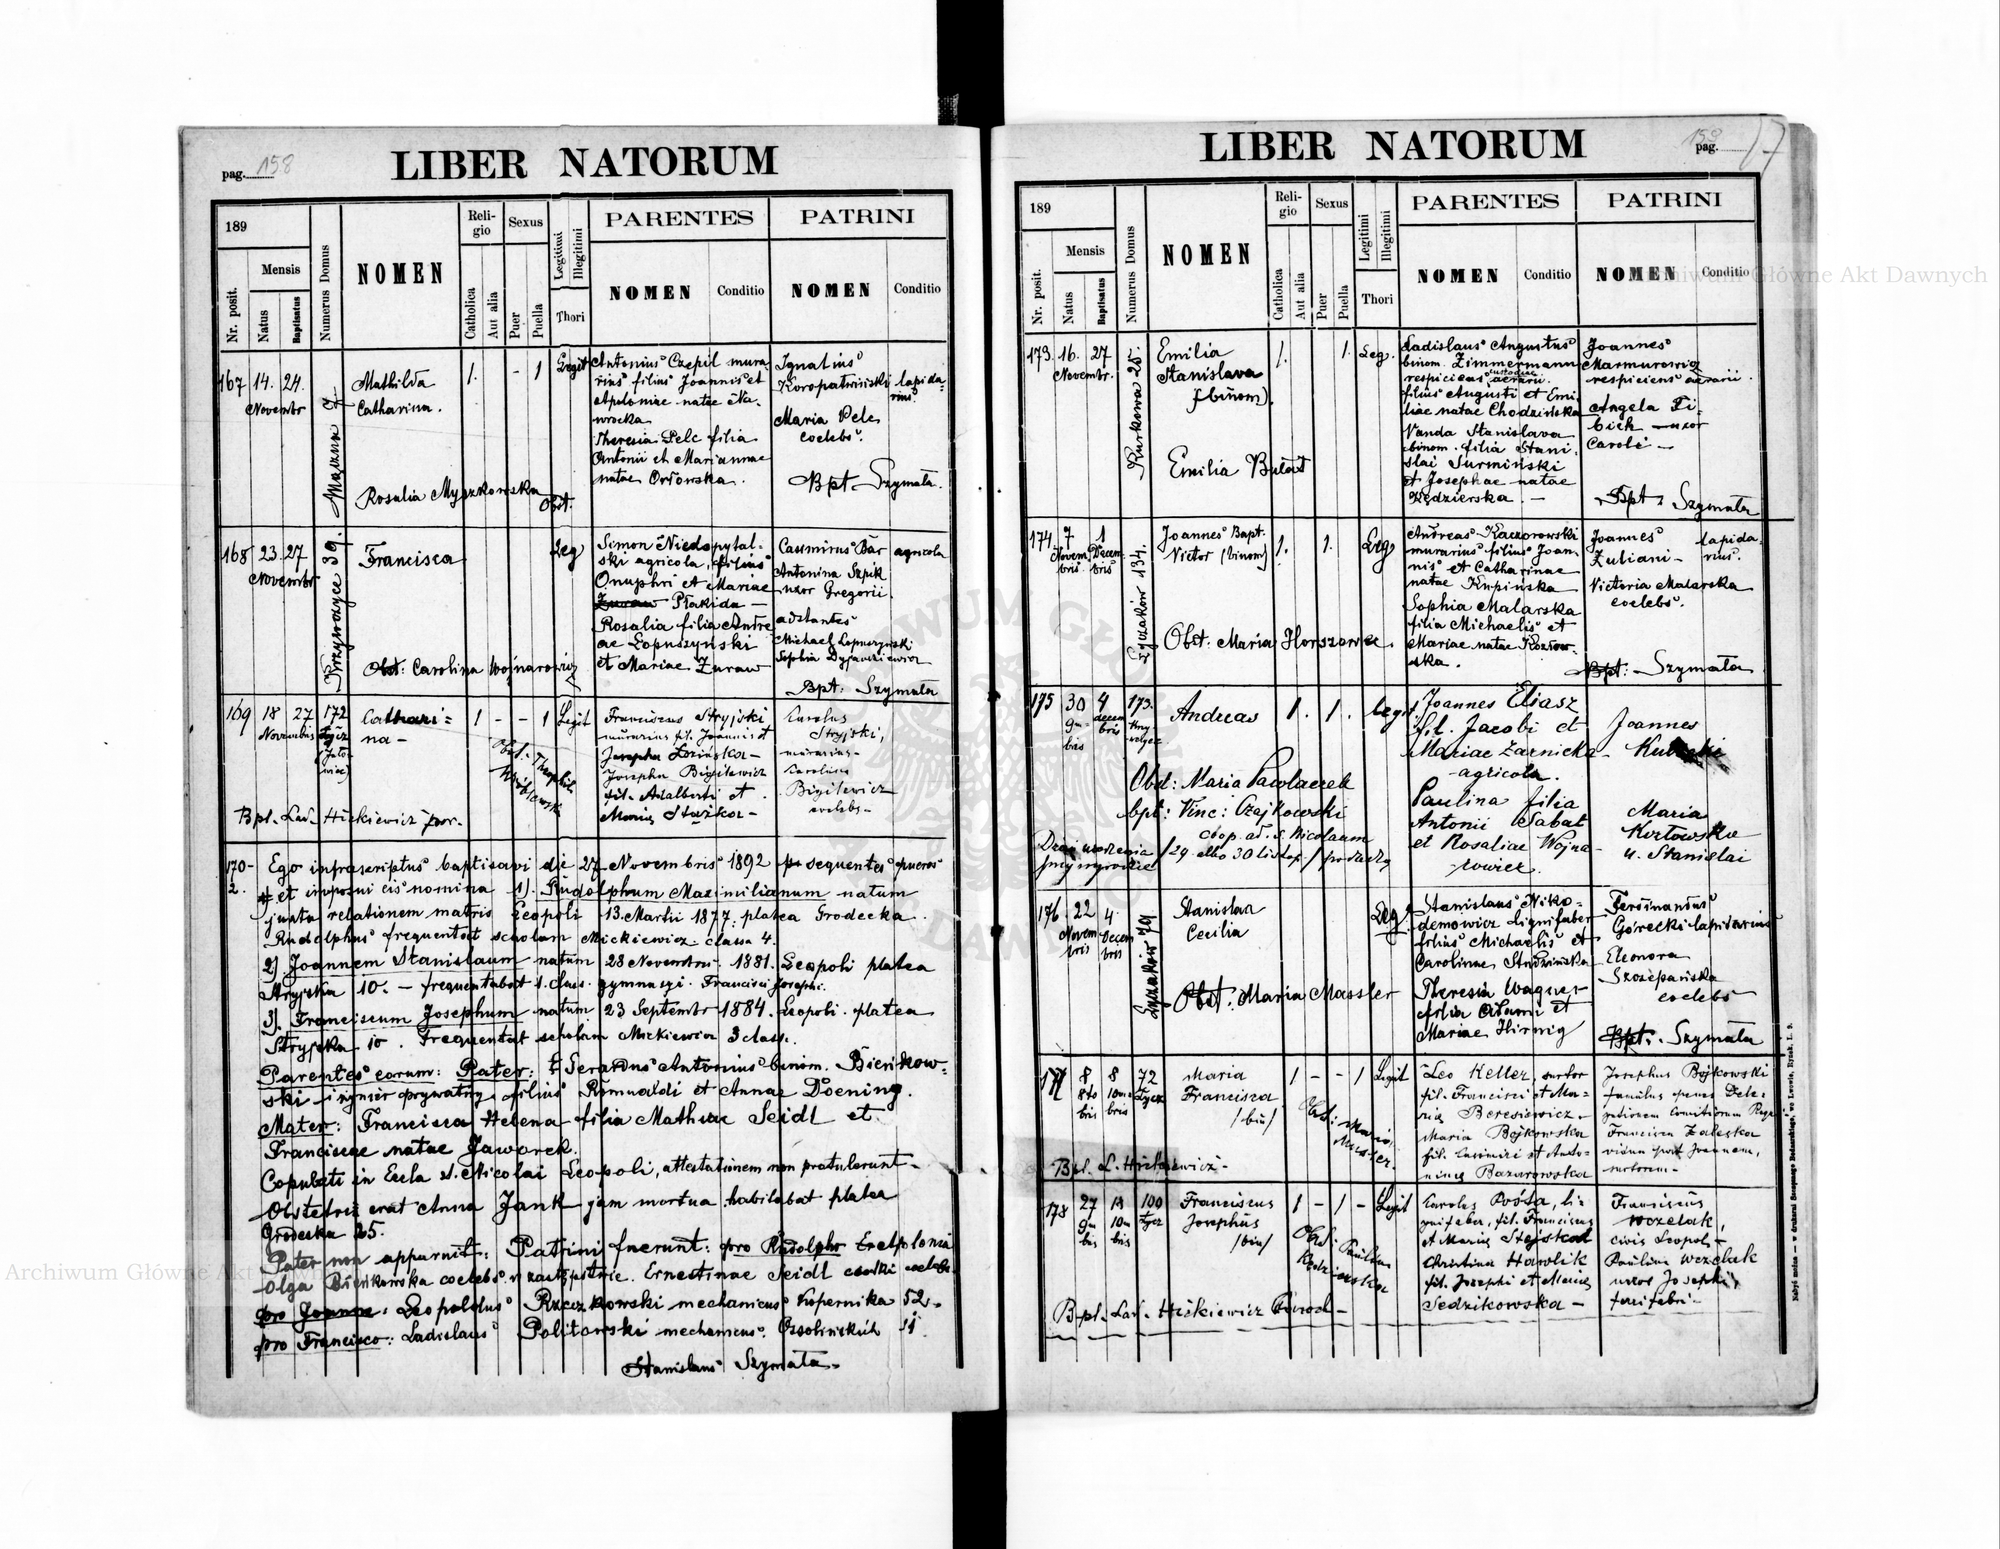 pag. 158
LIBER NATORUM
189
Nr. posit.
Mensis
Natus
Baptisatus
Numerus Domus
NOMEN
Reli-
gio
Catholica
Aut alia
Sexus
Puer
Puella
Legitimi
Illegitimi
Thori
PARENTES
NOMEN
Conditio
PATRINI
NOMEN
Conditio
167 14. 24.
Novembr
Mathilda
Catharina.
1. - 1
Legit
Antonius Czepil mura-
rius filius Joannis et
Apoloniae natae Na-
wrocka
Theresia Pelc filia
Antonii et Mariannae
natae Orłowska.
Ignatius
Koropatnicki lapida-
rius
Maria Pelc
coelebs.
Bpt. Szymała.
Rosalia Myszkowska
Obst.
168 23. 27
Novembr
Krzywczyce 39.
Francisca
Leg
Simon Niedopytal-
ski agricola, filius
Onuphri et Mariae
Płakida —
Rosalia filia Andre
ae Łopuszyński
et Mariae Żuraw
Casimirus Bar agricola
Antonina Szpik
uxor Gregorii
adstantes
Michael Łopuszyński
Sophia
Bpt: Szymała
Obst: Carolina Wojnarowicz
169 18 27 172
Novembris Łycz
Cathari=
na-
1 - - 1 Legit
Franciscus Stryjski,
murarius fil. Joannis et
Josepha
Josepha Bigilewicz
fil. Adalberti et
Carolus
Stryjski,
murarius-
Carolina
Bigilewicz
coelebs-
Bpt. Lad. Hickiewicz par.
170-
2.
Ego infrascriptus baptisavi die 27 Novembris 1892 sequentes pueros
et imposui eis nomina 1). Rudolphum Maximilianum natum
juxta relationem matris Leopoli 13. Martii 1877. platea Grodecka.
Rudolphus frequentat scholam Mickiewicz classa 4.
2) Joannem Stanislaum natum 28 Novembris 1881. Leopoli platea
Stryjska 10. — frequentabat 1. class. gymnasii Francisci Josephi.
3). Franciscum Josephum natum 23 Septembr 1884. Leopoli. platea
Stryjska 10. Frequentat scholam Mickiewicz 3 class.
Parentes eorum: Pater: Serafinus Antonius binom. Bieńkow-
ski inżynier prywatny filius Romualdi et Annae Doening.
Mater: Francisca Helena filia Mathiae Seidl et
Franciscae natae Jaworek.
Copulati in Eccla s. Nicolai Leopoli, attestationem non protulerunt-
Obstetrix erat Anna Jank jam mortua habitabat platea
Grodecka 25.
Pater non apparuit: Patrini fuerunt: pro Rudolpho
Olga Bieńkowska coelebs w zastępstwie Ernestinae Seidl
pro Joanne: Leopoldus Rzeczkowski mechanicus Kopernika 52.
pro Francisco: Ladislaus Politowski mechanicus. Ossolińskich 11.
Stanislaus Szymała.
pag. 159
LIBER NATORUM
189
Nr. posit.
Mensis
Natus
Baptisatus
Numerus Domus
NOMEN
Reli-
gio
Catholica
Aut alia
Sexus
Puer
Puella
Legitimi
Illegitimi
Thori
PARENTES
NOMEN
Conditio
PATRINI
NOMEN
Conditio
173. 16. 27
Novembr.
Kurkowa 25.
Emilia
Stanislava
(binom).
1. 1. Leg.
Ladislaus Augustus
binom. Zimmermann
respiciens custodiae aerarii.
filius Augusti et Emi-
liae natae Chodzińska
Vanda Stanislava
binom. filia Stani-
slai Surmiński
et Josephae natae
Kędzierska. —
Joannes
Marmurowicz
respiciens aerarii.
Angela Fi-
bich — uxor
Caroli —
Bpt: Szymała
Emilia Bułat
174. 7 1
Novem Decem
bris bris
Łyczaków 134.
Joannes Bapt.
Victor (binom)
1. 1. Leg
Andreas Kaczorowski
murarius filius Joan-
nis et Catharinae
natae Krupińska
Sophia Malarska
filia Michaelis et
Mariae natae Kozłow-
ska.
Joannes lapida-
Zuliani - rius.
Victoria Malarska
coelebs.
Bpt: Szymała
Obst: Maria Horszowa
175 30 4 173.
decem
bris
Andreas
1. 1. Legit.
Joannes Eliasz
fil. Jacobi et
Mariae Żarnicka-
agricola.
Paulina filia
Antonii Sabat
et Rosaliae Wojna-
rowicz.
Joannes
Maria
Kozłowska
u. Stanislai
Obst: Maria Pacołaczek
bpt: Vinc: Czajkowski
coop. ad. s. Nicolaum
Dzień urodzenia /29 albo 30 listop./ podadzą
176. 22 4.
Novem Decem
bris bris
Łyczaków 79
Stanislaa
Cecilia
Leg.
Stanislaus Niko-
demowicz lignifaber
filius Michaelis et
Carolinae Studzińska
Theresia Wagner
filia Adami et
Mariae Hirnig
Ferdinandus
Górecki lapidarius
Eleonora
Szczepańska
coelebs
Bpt. Szymała
Obst: Maria Massler
177 8 8 72
8to 10m- Łycz
bris bris
Maria
Francisca
/bin/
1 - - 1 Legit
Obst: Maria
Massler.
Leo Keller, sartor
fil. Francisci et Ma-
riae Beresiewicz-
Maria Bojkowska
fil. Casimiri et Anto-
ninae Bazarowska
Josephus Bojkowski
famulus penes Dele-
gationem
Francisca Zaleska
vidua post Joannem,
sartorem-
Bpt. L. Hickiewicz-
178 27 18 100
9m 10m Łycz
bis bris
Franciscus
Josephus
/bin/
1 - 1 - Legit
Obst: Paulina
Kędzierska
Carolus Rosta, li-
gnifaber, fil. Francisci
et Mariae Stejskal
Christina Hawlik
fil. Josephi et Mariae
Sedzikowska —
Franciscus
Wczelak,
civis Leopol-
Paulina Wczelak
uxor Josephi
lignifabri-
Bpt. Lad. Hickiewicz
Archiwum Główne Akt Dawnych